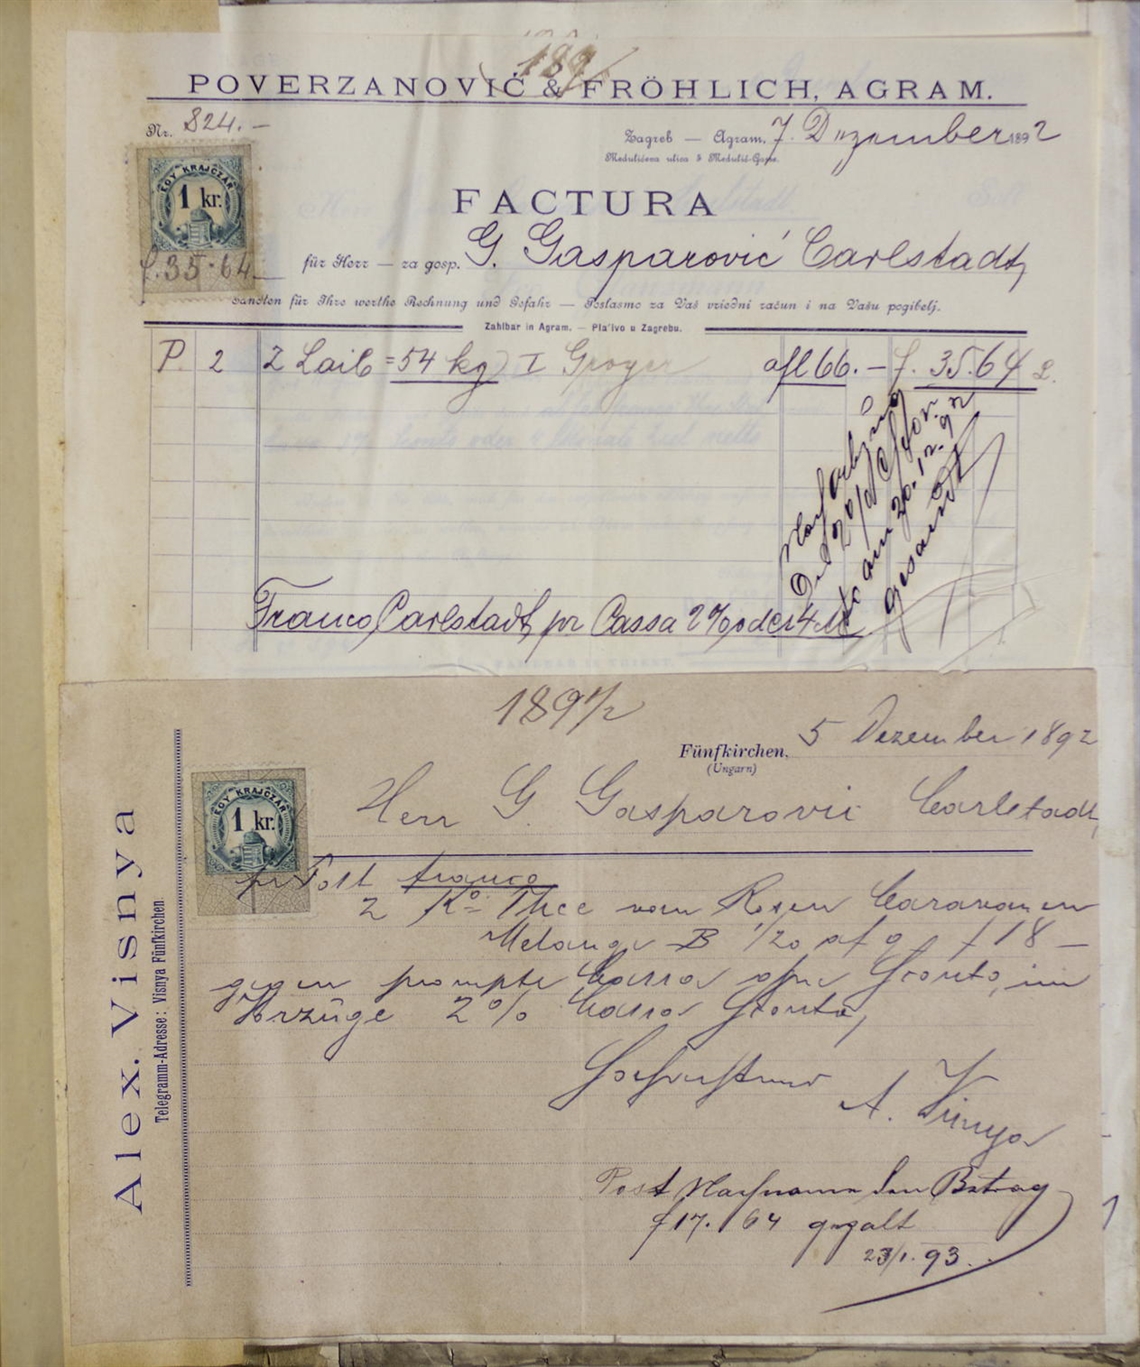 189
POVERZANOVIĆ & FRÖHLICH, AGRAM.
Nr. 824.-
Zagreb — Agram, 7. Dezember 1892
Medulićeva ulica 3 Medulić-Gasse.
EGY KRAJCZÁR
1 kr.
FACTURA
f. 35.64
für Herr — za gosp. G. Gasparović Carlstadt,
Sandten für Ihre werthe Rechnung und Gefahr — Poslasmo za Vaš vriedni račun i na Vašu pogibelj.
Zahlbar in Agram. — Pla'ivo u Zagrebu.
P. 2 2 Laib = 54 kg I Groyer afl 66. — f. 35.64
2% 
am 20.12.92
gesandt
Franco Carlstadt, pr Cassa 2% oder 4 M
1892
Fünfkirchen, 5 Dezember 1892
(Ungarn)
Alex. Visnya
Telegramm-Adresse: Visnya Fünfkirchen.
EGY KRAJCZÁR
1 kr.
Herr G. Gasparovic Carlstadt,
pr Post franco
2 Ko Thee Caravanen
Melange B 1/20 f 18 —
gegen prompte Cassa Sconto, im
Verzuge 2% Cassa Sconto,
Hochachtend
A. Visnya
Post Nachname den Betrag
f 17. 64 gezalt
23/1. 93.